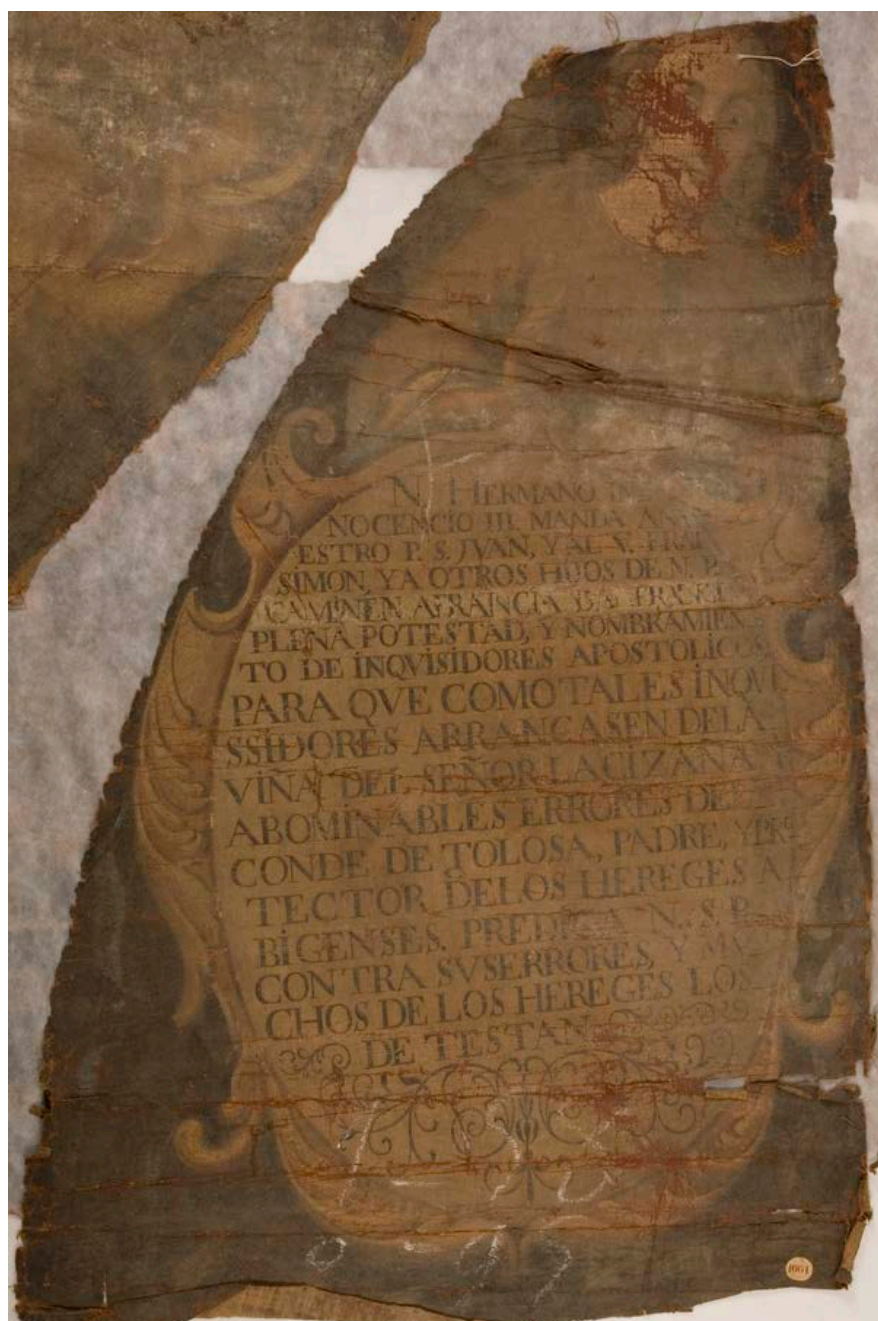 N. HERMANO IN
NOCENCIO III. MANDA A
ESTRO P. S. JVAN, Y AL V. FRAI
SIMON, YA OTROS HIJOS DE N. P.
CAMINEN AFRANCIA
PLENA POTESTAD, Y NOMBRAMIEN
TO DE INQVISIDORES APOSTOLICOS,
PARA QVE COMO TALES INQVI
SSIDORES ARRANCASEN DELA
VIÑA DEL SEÑOR LACIZAÑA Y
ABOMINABLES ERRORES DEL
CONDE DE TOLOSA, PADRE, YPRO
TECTOR DELOS HEREGES A
BIGENSES. PREDICA N. S. P.
CONTRA SVSERRORES, Y MV-
CHOS DE LOS HEREGES LOS
DE TESTAN
1661